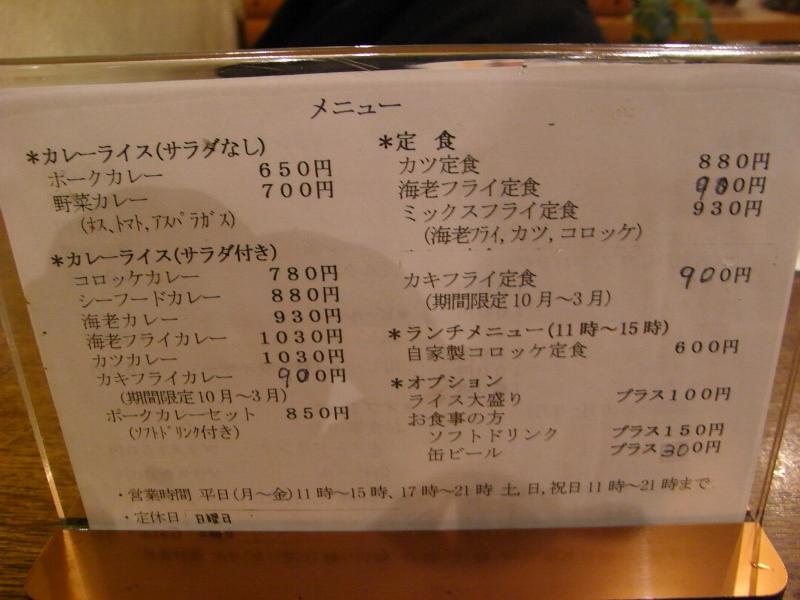 メニュー
＊カレーライス(サラダなし)
ポークカレー 650円
野菜カレー 700円
(ナス、トマト、アスパラガス)
＊カレーライス(サラダ付き)
コロッケカレー 780円
シーフードカレー 880円
海老カレー 930円
海老フライカレー 1030円
カツカレー 1030円
カキフライカレー 900円
(期間限定10月～3月)
ポークカレーセット 850円
(ソフトドリンク付き)
＊定 食
カツ定食 880円
海老フライ定食 900円
ミックスフライ定食 930円
(海老フライ,カツ,コロッケ)
カキフライ定食 900円
(期間限定10月～3月)
＊ランチメニュー(11時～15時)
自家製コロッケ定食 600円
＊オプション
ライス大盛り プラス100円
お食事の方
ソフトドリンク プラス150円
缶ビール プラス300円
・営業時間 平日(月～金)11時～15時、17時～21時 土,日,祝日11時～21時まで
・定休日 日曜日